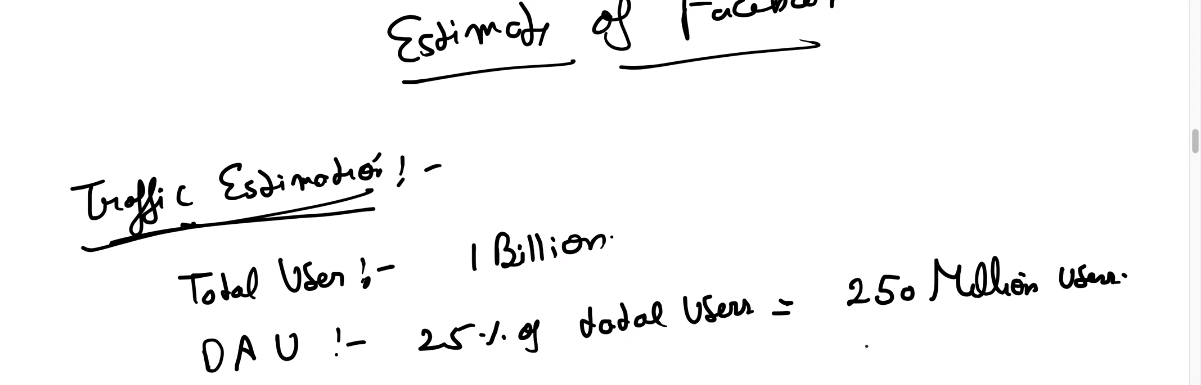 Estimate of Facebook
Traffic Estimation:-
Total User:- 1 Billion.
DAU :- 25% of total Users = 250 Million Users.